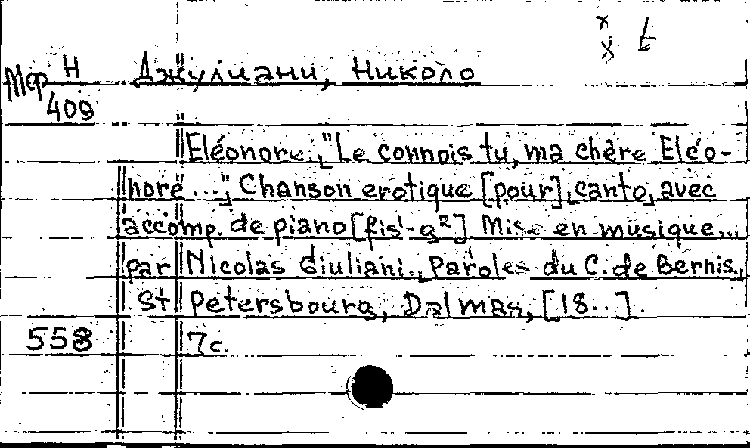 x
x t
Мср Н Джулиани, Николо
409
Eléonore, "Le connois tu, ma chère Eléo-
nore ...", Chanson erotique [pour] canto, avec
accomp. de piano [fis¹-g²] Mise en musique...
par Nicolas Giuliani. Paroles du C. de Bernis,
St Petersbourg, Dalmas, [18..].
558 7с.